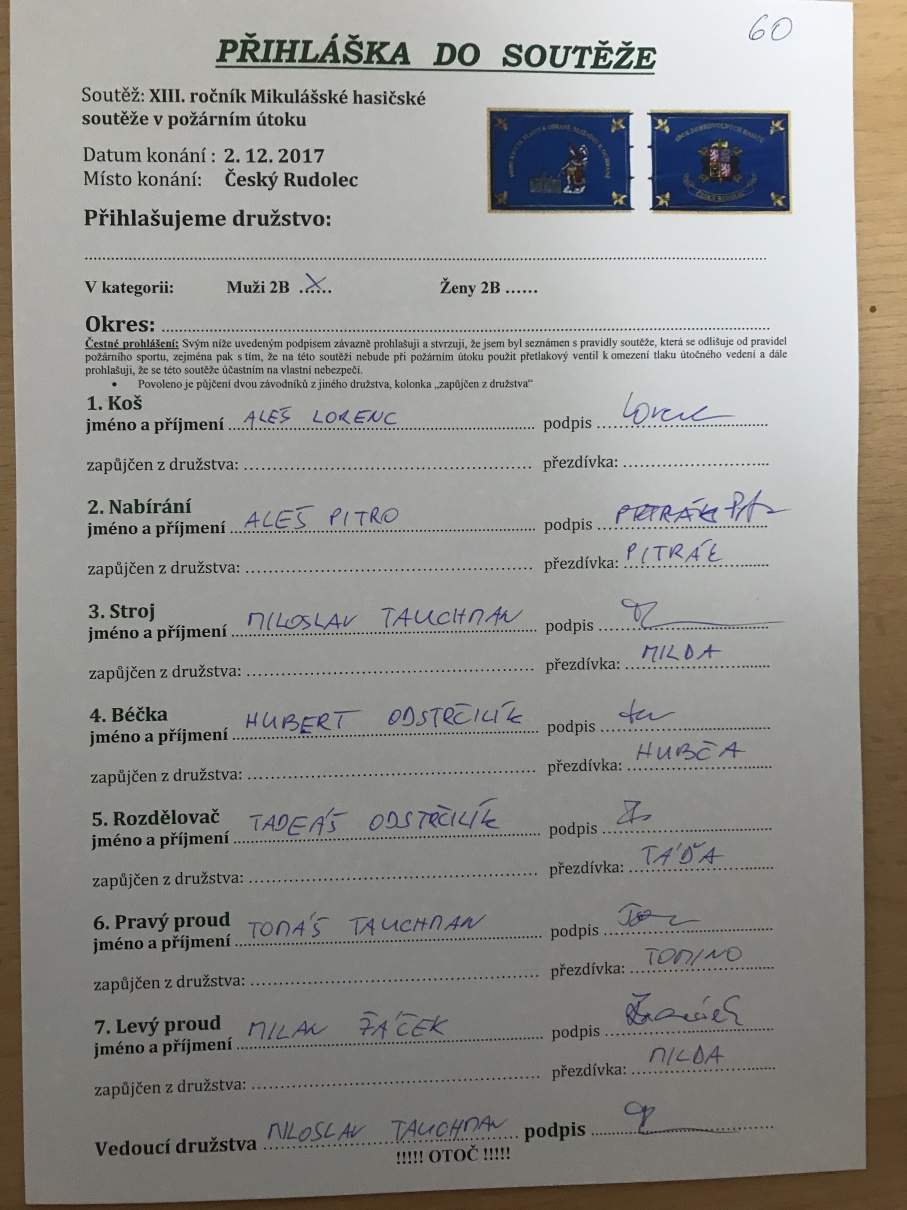 60
PŘIHLÁŠKA DO SOUTĚŽE
Soutěž: XIII. ročník Mikulášské hasičské
soutěže v požárním útoku
Datum konání : 2. 12. 2017
Místo konání: Český Rudolec
Přihlašujeme družstvo:
V kategorii: Muži 2B ...X... Ženy 2B ......
Okres:
Čestné prohlášení: Svým níže uvedeným podpisem závazně prohlašuji a stvrzuji, že jsem byl seznámen s pravidly soutěže, která se odlišuje od pravidel
požárního sportu, zejména pak s tím, že na této soutěži nebude při požárním útoku použit přetlakový ventil k omezení tlaku útočného vedení a dále
prohlašuji, že se této soutěže účastním na vlastní nebezpečí.
• Povoleno je půjčení dvou závodníků z jiného družstva, kolonka „zapůjčen z družstva“
1. Koš
jméno a příjmení ALEŠ LORENC podpis Lorenc
zapůjčen z družstva: přezdívka:
2. Nabírání
jméno a příjmení ALEŠ PITRO podpis
zapůjčen z družstva: přezdívka: PITRÁK
3. Stroj
jméno a příjmení MILOSLAV TAUCHMAN podpis
zapůjčen z družstva: přezdívka: MILDA
4. Béčka
jméno a příjmení HUBERT ODSTRČILÍK podpis
zapůjčen z družstva: přezdívka: HUBČA
5. Rozdělovač
jméno a příjmení TADEÁŠ ODSTRČILÍK podpis
zapůjčen z družstva: přezdívka: TÁĎA
6. Pravý proud
jméno a příjmení TOMÁŠ TAUCHMAN podpis
zapůjčen z družstva: přezdívka: TOMINO
7. Levý proud
jméno a příjmení MILAN ŽÁČEK podpis
zapůjčen z družstva: přezdívka: MILDA
Vedoucí družstva MILOSLAV TAUCHMAN podpis
!!!!! OTOČ !!!!!